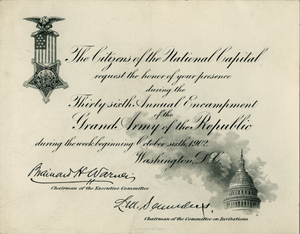 The Citizens of the National Capital
request the honor of your presence
during the
Thirty sixth Annual Encampment
of the
Grand Army of the Republic
during the week beginning October sixth, 1902
Washington, D.C.
Brainard H. Warner
Chairman of the Executive Committee
Saunders
Chairman of the Committee on Invitations